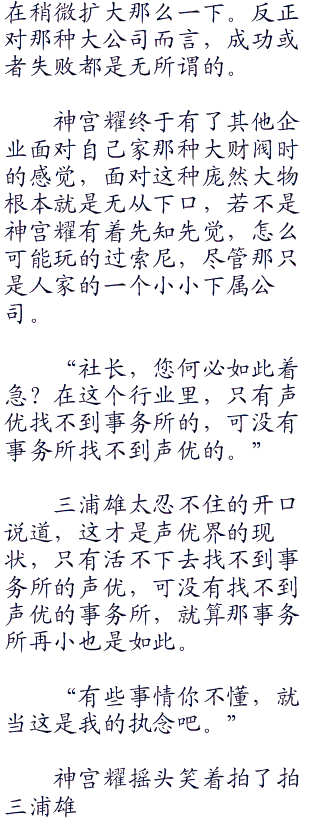 在稍微扩大那么一下。反正
对那种大公司而言，成功或
者失败都是无所谓的。
神宫耀终于有了其他企
业面对自己家那种大财阀时
的感觉，面对这种庞然大物
根本就是无从下口，若不是
神宫耀有着先知先觉，怎么
可能玩的过索尼，尽管那只
是人家的一个小小下属公
司。
“社长，您何必如此着
急？在这个行业里，只有声
优找不到事务所的，可没有
事务所找不到声优的。”
三浦雄太忍不住的开口
说道，这才是声优界的现
状，只有活不下去找不到事
务所的声优，可没有找不到
声优的事务所，就算那事务
所再小也是如此。
“有些事情你不懂，就
当这是我的执念吧。”
神宫耀摇头笑着拍了拍
三浦雄